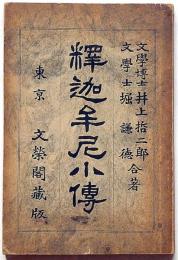 文學博士井上哲二郎
文學士堀謙德合著
釋迦牟尼小傳
東京 文榮閣藏版